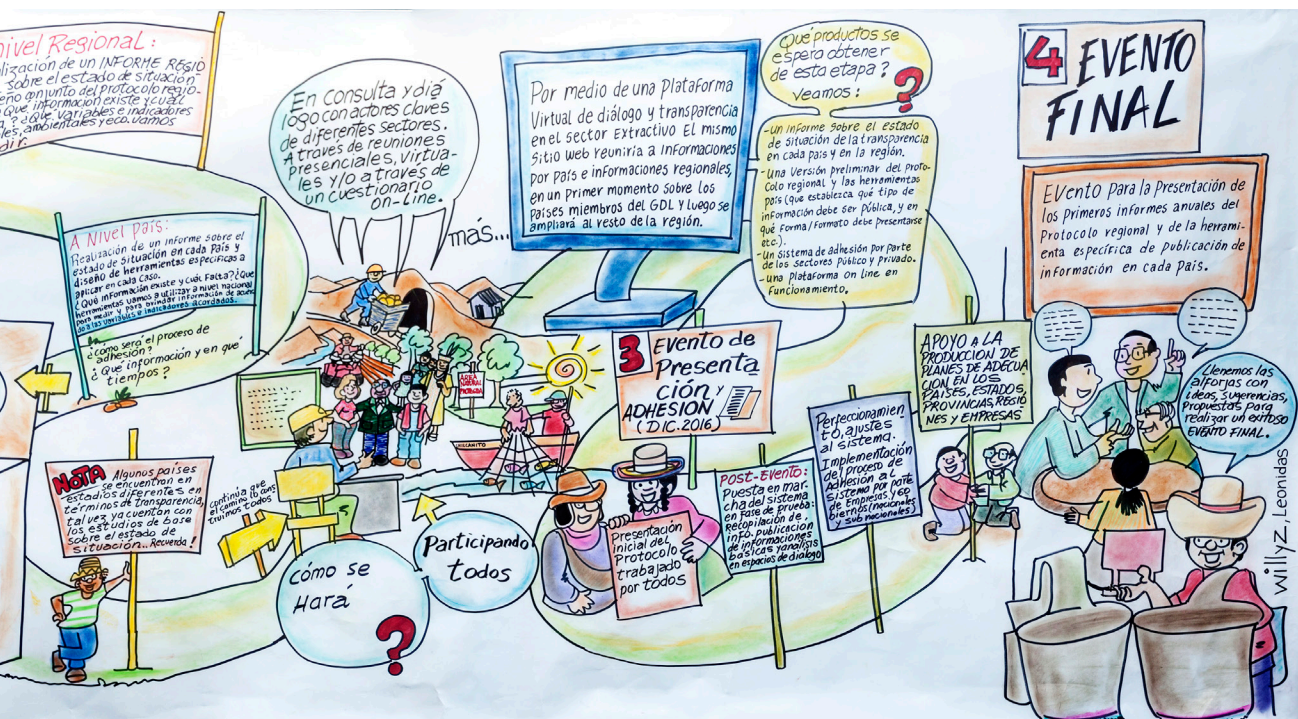 nivel Regional:
lización de un INFORME REGIO
sobre el estado de situación
eño conjunto del protocolo regio-
Que información existe y cuál
? ¿Qué variables e indicadores
les, ambientales y eco. vamos
dir.
A Nivel País:
Realización de un informe sobre el
estado de situación en cada País y
diseño de herramientas específicas a
aplicar en cada caso.
¿Qué información existe y cuál Falta? ¿Que
herramientas vamos a utilizar a nivel nacional
para medir y para brindar información de acuer
do a las variables e indicadores acordados.
¿cómo será el proceso de
adhesión?
¿Qué información y en qué
tiempos?
NOTA Algunos países
se encuentran en
estadios diferentes en
términos de transparencia,
tal vez ya cuentan con
los estudios de base
sobre el estado de
situación... Recuerda!
continúa que
el camino lo cons
truimos todos
En consulta y diá
logo con actores claves
de diferentes sectores.
A través de reuniones
presenciales, virtua-
les y/o a través de
un cuestionario
on-line.
más...
AREA
NATURAL
PROTEGIDA
Cómo se
Hará
?
Participando
todos
Por medio de una Plataforma
Virtual de diálogo y transparencia
en el sector Extractivo El mismo
Sitio web reuniría a Informaciones
por País e informaciones regionales,
en un Primer momento sobre los
Países miembros del GDL y luego se
ampliará al resto de la región.
Qué productos se
espera obtener
de esta etapa?
veamos:
-un informe sobre el estado
de situación de la transparencia
en cada país y en la región.
-Una Versión preliminar del Proto-
colo regional y las herramientas
país (que establezca qué tipo de
información debe ser Pública, y en
qué Forma/Formato debe presentarse
etc.).
-Un sistema de adhesión por parte
de los sectores Público y Privado.
-una Plataforma On line en
Funcionamiento.
3 Evento de
Presenta
ción y
ADHESIÓN
(DIC. 2016)
Presentación
inicial del
Protocolo
trabajado
por todos
POST-EVENTO:
Puesta en mar-
cha del sistema
en Fase de prueba:
recopilación de
info. publicación
de informaciones
básicas y análisis
en espacios de diálogo
Perfeccionamien
to, ajustes
al sistema.
Implementación
del proceso de
Adhesión al
sistema por parte
de Empresas, y go
biernos (nacionales
y sub nacionales)
APOYO a LA
PRODUCCIÓN DE
PLANES DE ADECUA
CIÓN EN LOS
PAÍSES, ESTADOS,
PROVINCIAS, REGIO
NES y EMPRESAS
4 EVENTO
FINAL
EVento Para la Presentación de
los primeros informes anuales del
Protocolo regional y de la herrami-
enta específica de publicación de
información en cada País.
Llenemos las
alforjas con
ideas, sugerencias,
Propuestas para
realizar un exitoso
EVENTO FINAL.
WillyZ, Leonidas